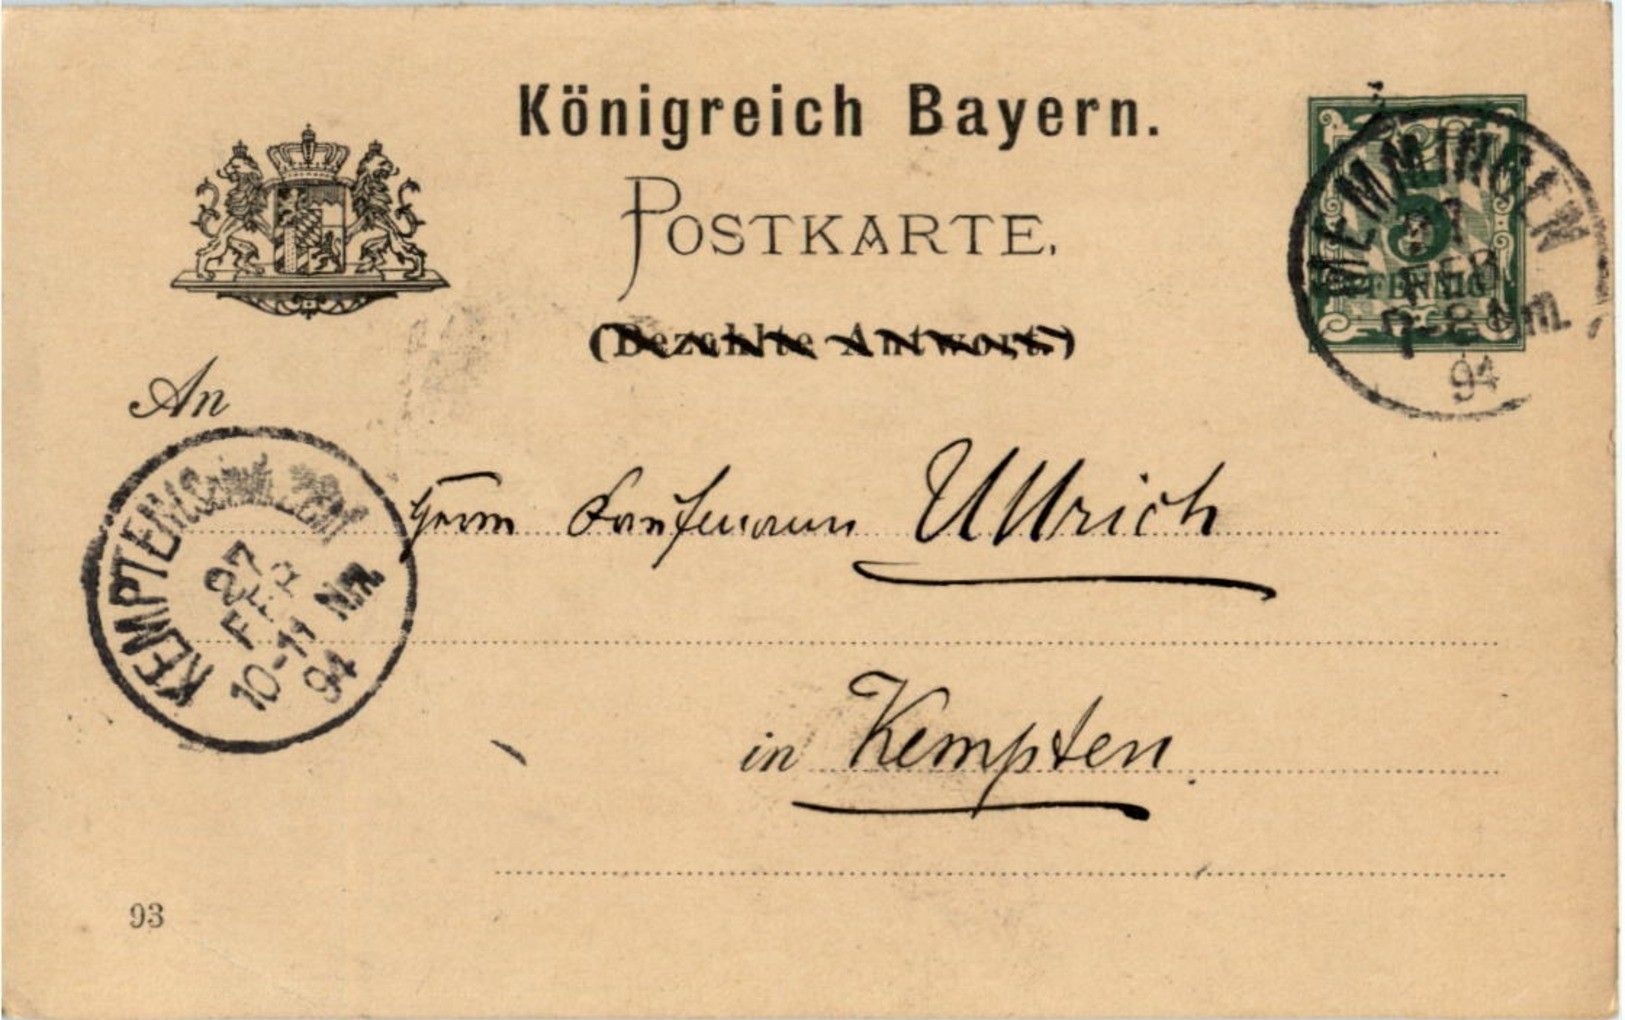 Königreich Bayern.
POSTKARTE.
(Bezahlte Antwort.)
5
PFENNIG
MEMMINGEN
FEB
7-8
94
An
KEMPTEN
27
FEB
10-11 Nm.
94
Herrn Kaufmann Ullrich
in Kempten.
93